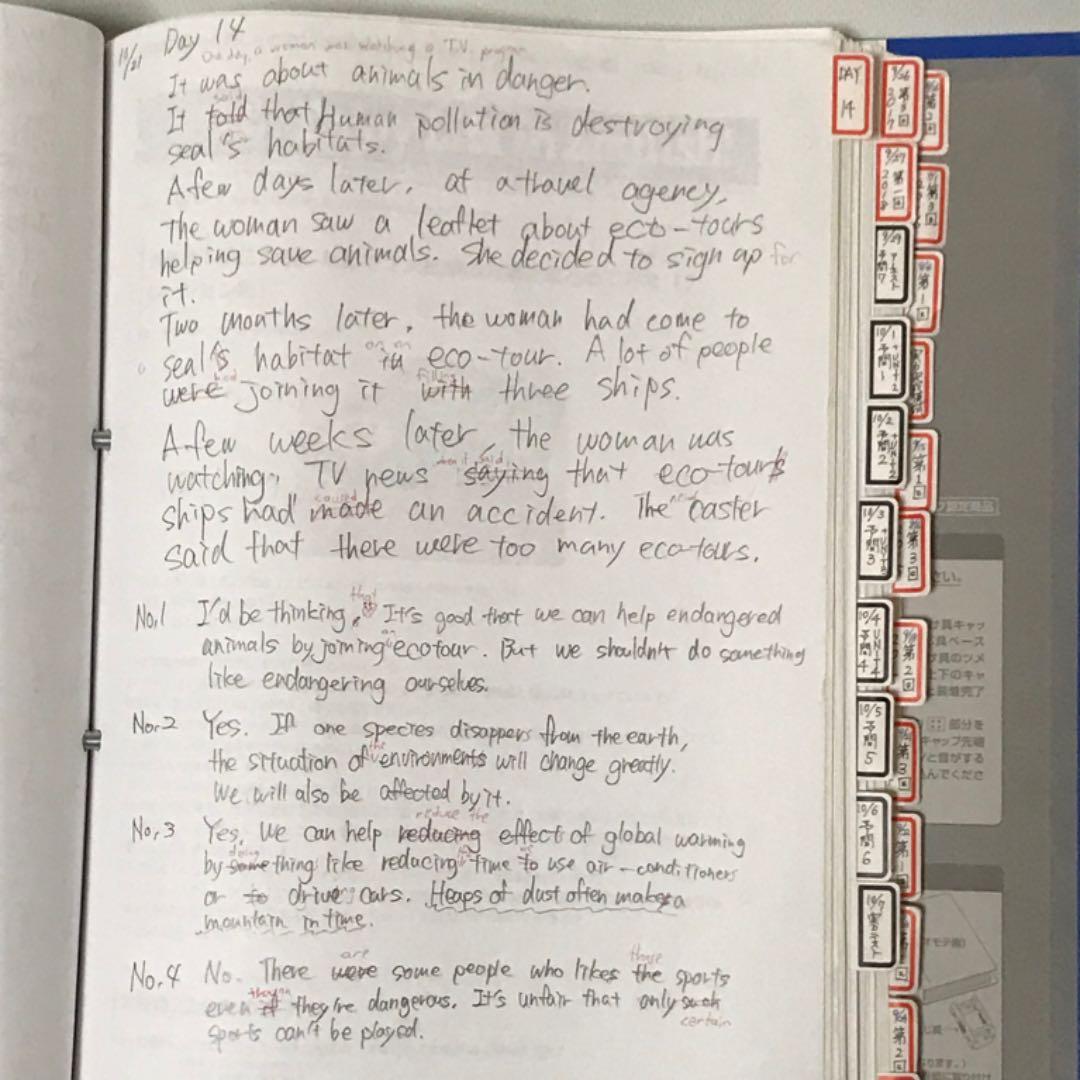 11/21 Day 14
One day, a woman was watching a T.V. program
It was about animals in danger.
said
It told that Human pollution is destroying
seal's habitats.
A few days later, at a travel agency,
the woman saw a leaflet about eco-tours
helping save animals. She decided to sign up for
it.
Two months later, the woman had come to
seal's habitat in eco-tour. A lot of people
were joining it with three ships.
A few weeks later, the woman was
watching TV news saying that eco-tours
caused
ships had made an accident. The caster
said that there were too many eco-tours.
that
No,1 I'd be thinking, It's good that we can help endangered
animals by joining an ecotour. But we shouldn't do something
like endangering ourselves.
No.2 Yes. If one species disappers from the earth,
the situation of the environments will change greatly.
We will also be affected by it.
reduce the
No,3 Yes. We can help reducing effect of global warming
doing
by something like reducing time to use air-conditioners
or to drive cars. Heaps of dust often makes a
mountain in time.
are those
No.4 No. There were some people who likes the sports
though
even if they're dangerous. It's unfair that only such
certain
sports can't be played.
DAY
14
9/26
第3回
2017
9/27
第一回
2018
9/29
予問7
10/1
+UNIT2
予問1
10/2
+UNIT2
予問2
10/3
予問3
10/4
UNIT4
予問4
10/5
予問5
10/6
予問6
10/7
第2回
第3回
第1回
第1回
第3回
第2回
第3回
第1回
第2回
さい。
具キャッ
具ペース
具のツメ
上下のキャ
と装着完了
部分を
キャップ先端
と音がする
んでくださ